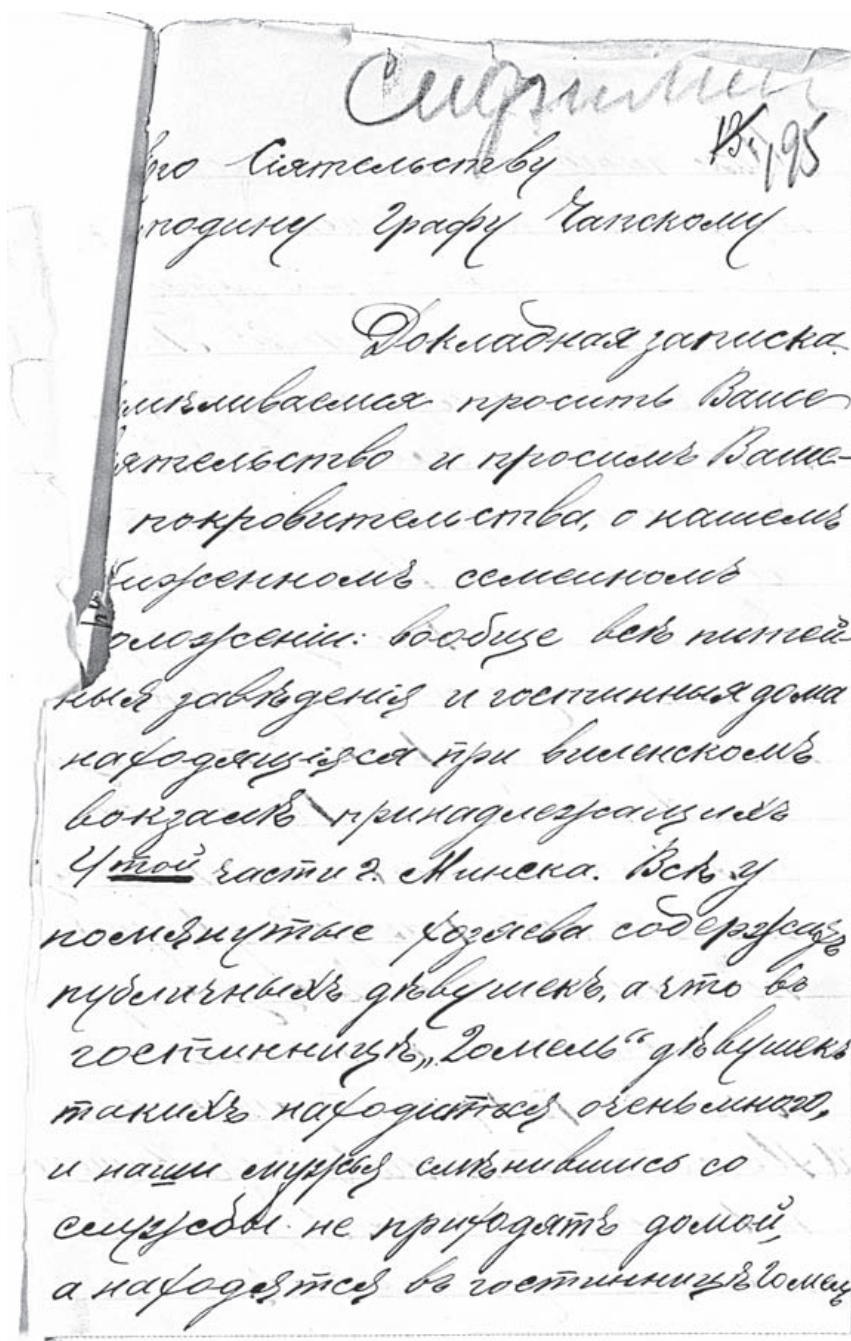 /95
го Сіятельству
подину Графу Чапскому
Докладная записка.
мѣливаемся просить Ваше
ятельство и просимъ Ваше-
покровительства, о нашемъ
иженномъ семеиномъ
оложеніи: вообще всѣ питей-
ныя завѣденія и гостинныя дома
находящіяся при виленскомъ
вокзалѣ принадлежащихъ
4той части г. Минска. Всѣ у
помянутые хозяева содержатъ
публичныхъ дѣвушекъ, а что въ
гостинницѣ „Гомель“ дѣвушекъ
такихъ находится очень много,
и наши мужья смѣнившись со
службы не приходятъ домой,
а находятся въ гостинницѣ Гомель